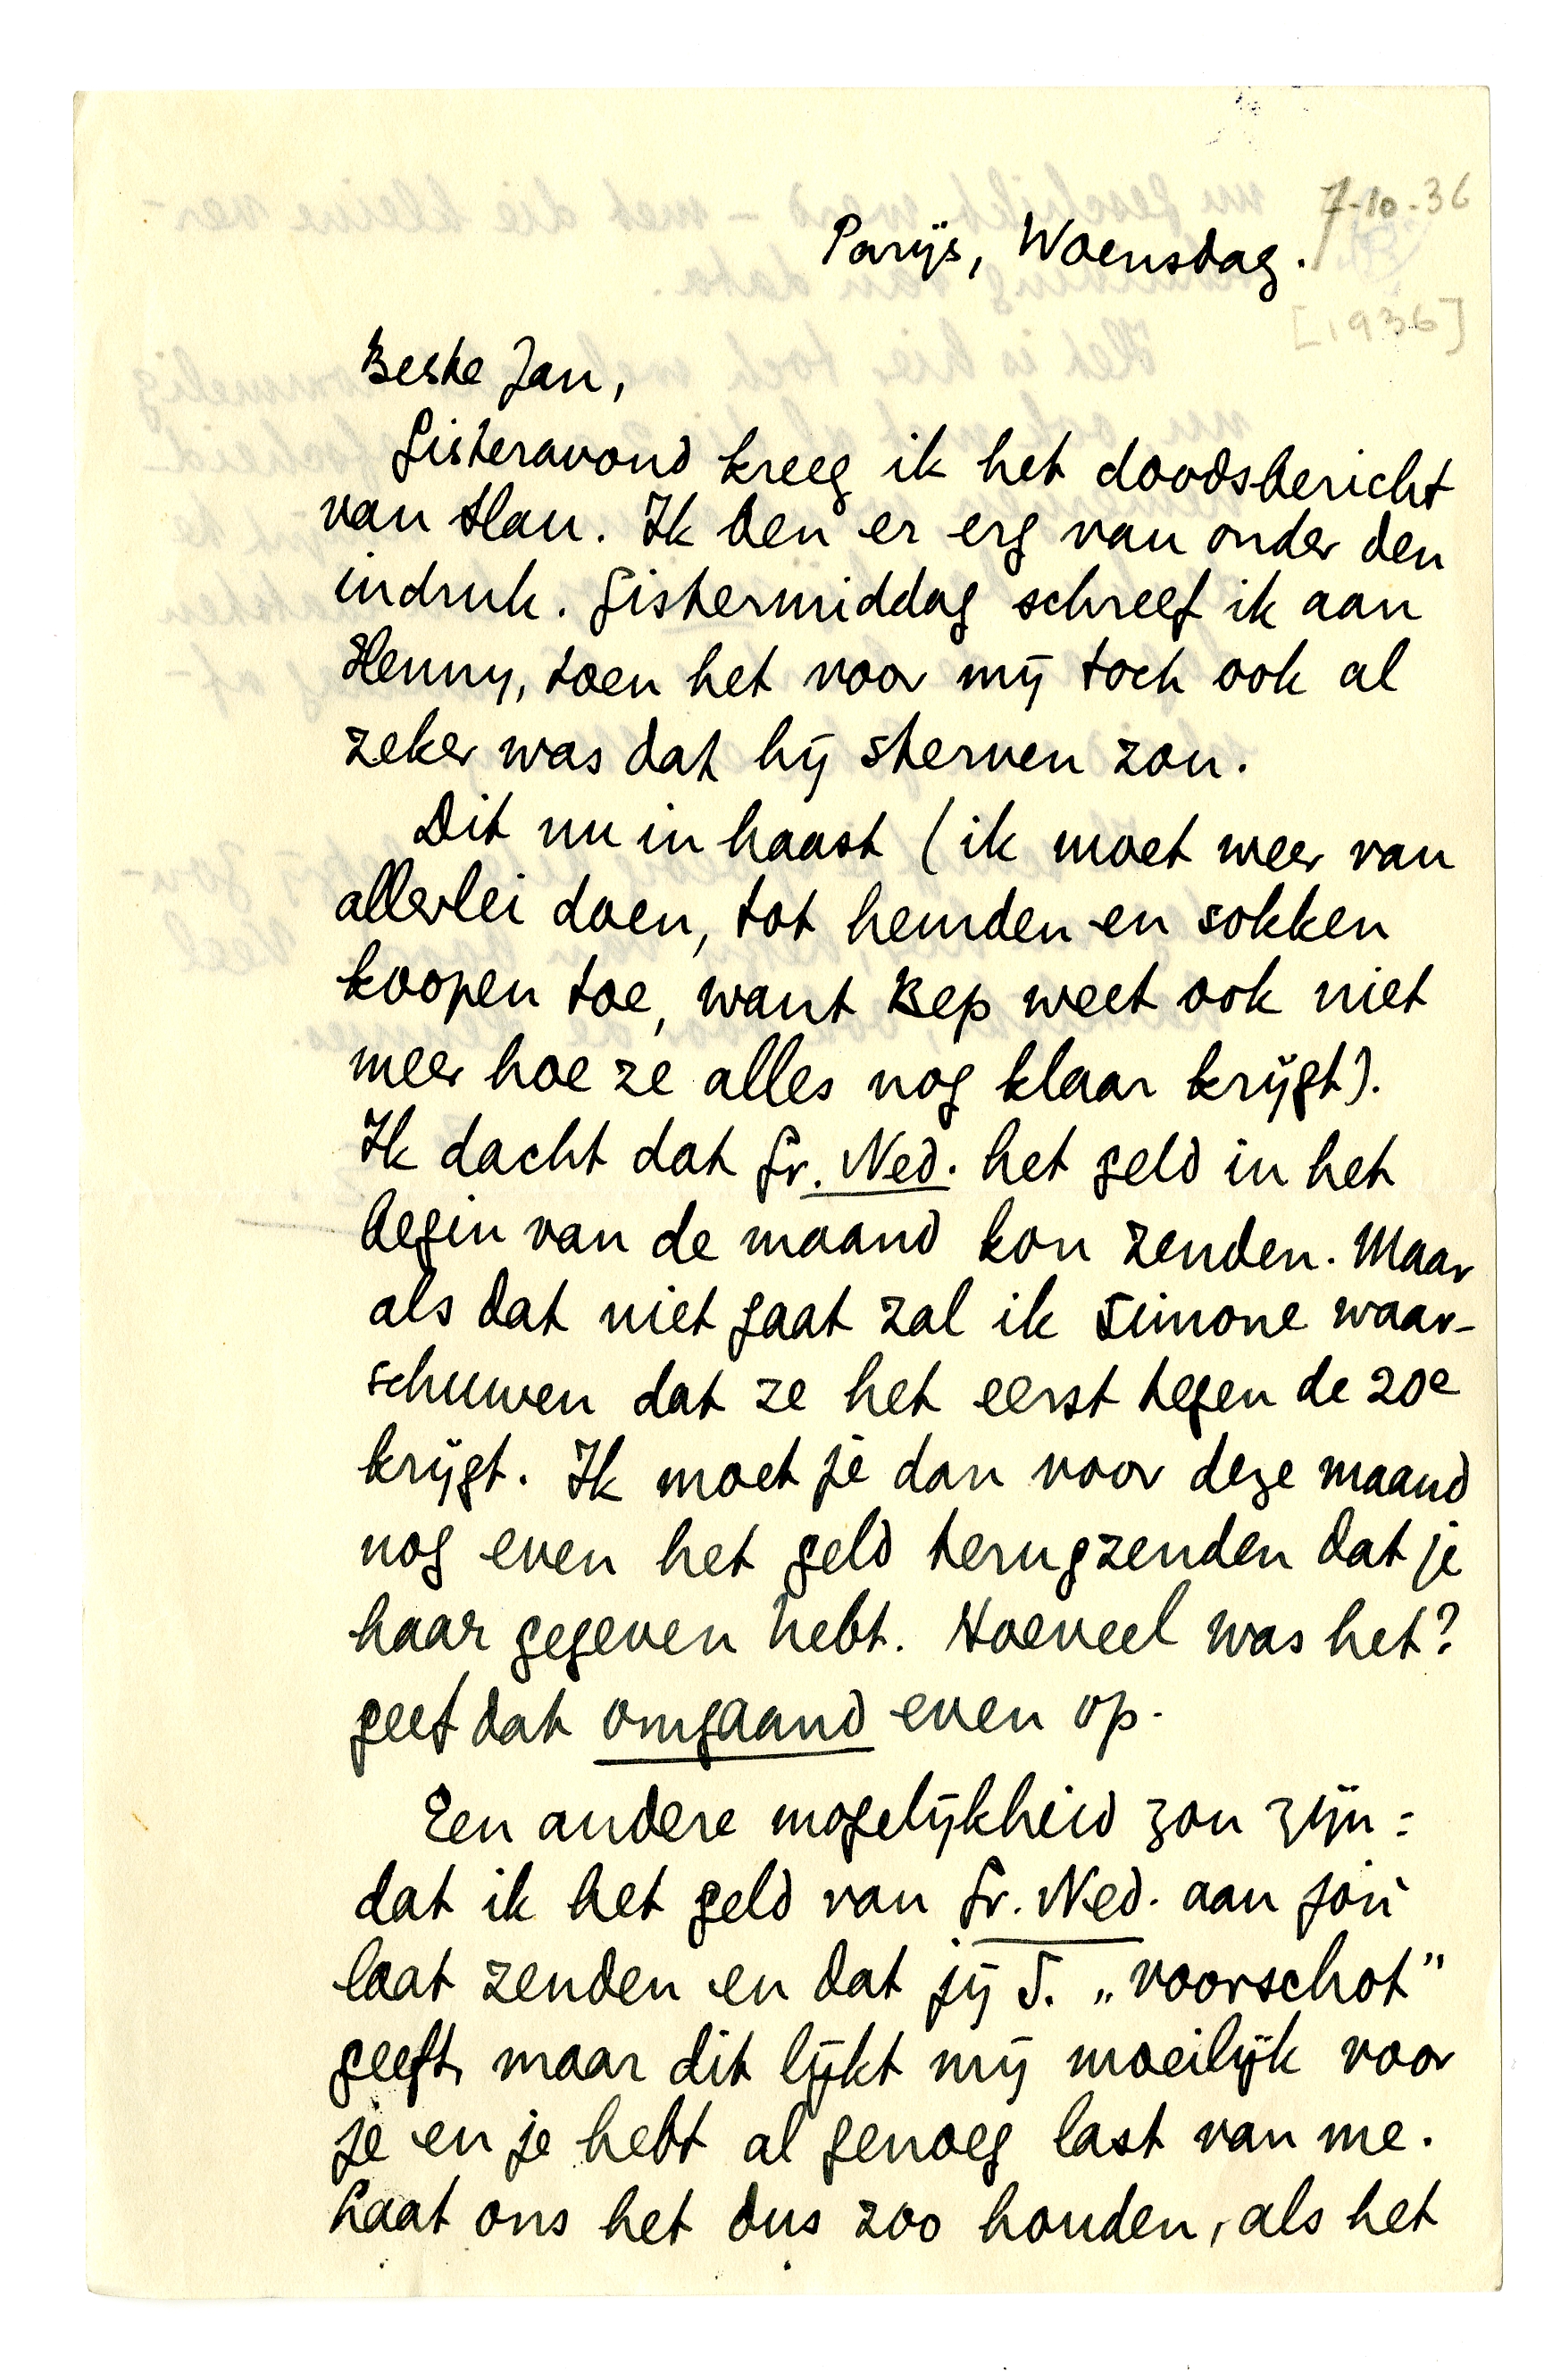 7-10-36
Parijs, Woensdag.
[1936]
Beste Jan,
Gisteravond kreeg ik het doodsbericht
van Han. Ik ben er erg van onder den
indruk. Gistermiddag schreef ik aan
Henny, toen het voor mij toch ook al
zeker was dat hij sterven zou.
Dit nu in haast (ik moet weer van
allerlei doen, tot hemden en sokken
koopen toe, want Bep weet ook niet
meer hoe ze alles nog klaar krijgt).
Ik dacht dat Gr. Ned. het geld in het
begin van de maand kon zenden. Maar
als dat niet gaat zal ik Simone waar-
schuwen dat ze het eerst tegen de 20e
krijgt. Ik moet je dan voor deze maand
nog even het geld terugzenden dat je
haar gegeven hebt. Hoeveel was het?
geef dat omgaand even op.
Een andere mogelijkheid zou zijn:
dat ik het geld van Gr. Ned. aan jou
laat zenden en dat jij S. „voorschot"
geeft, maar dit lijkt mij moeilijk voor
je en je hebt al genoeg last van me.
Laat ons het dus zoo houden, als het